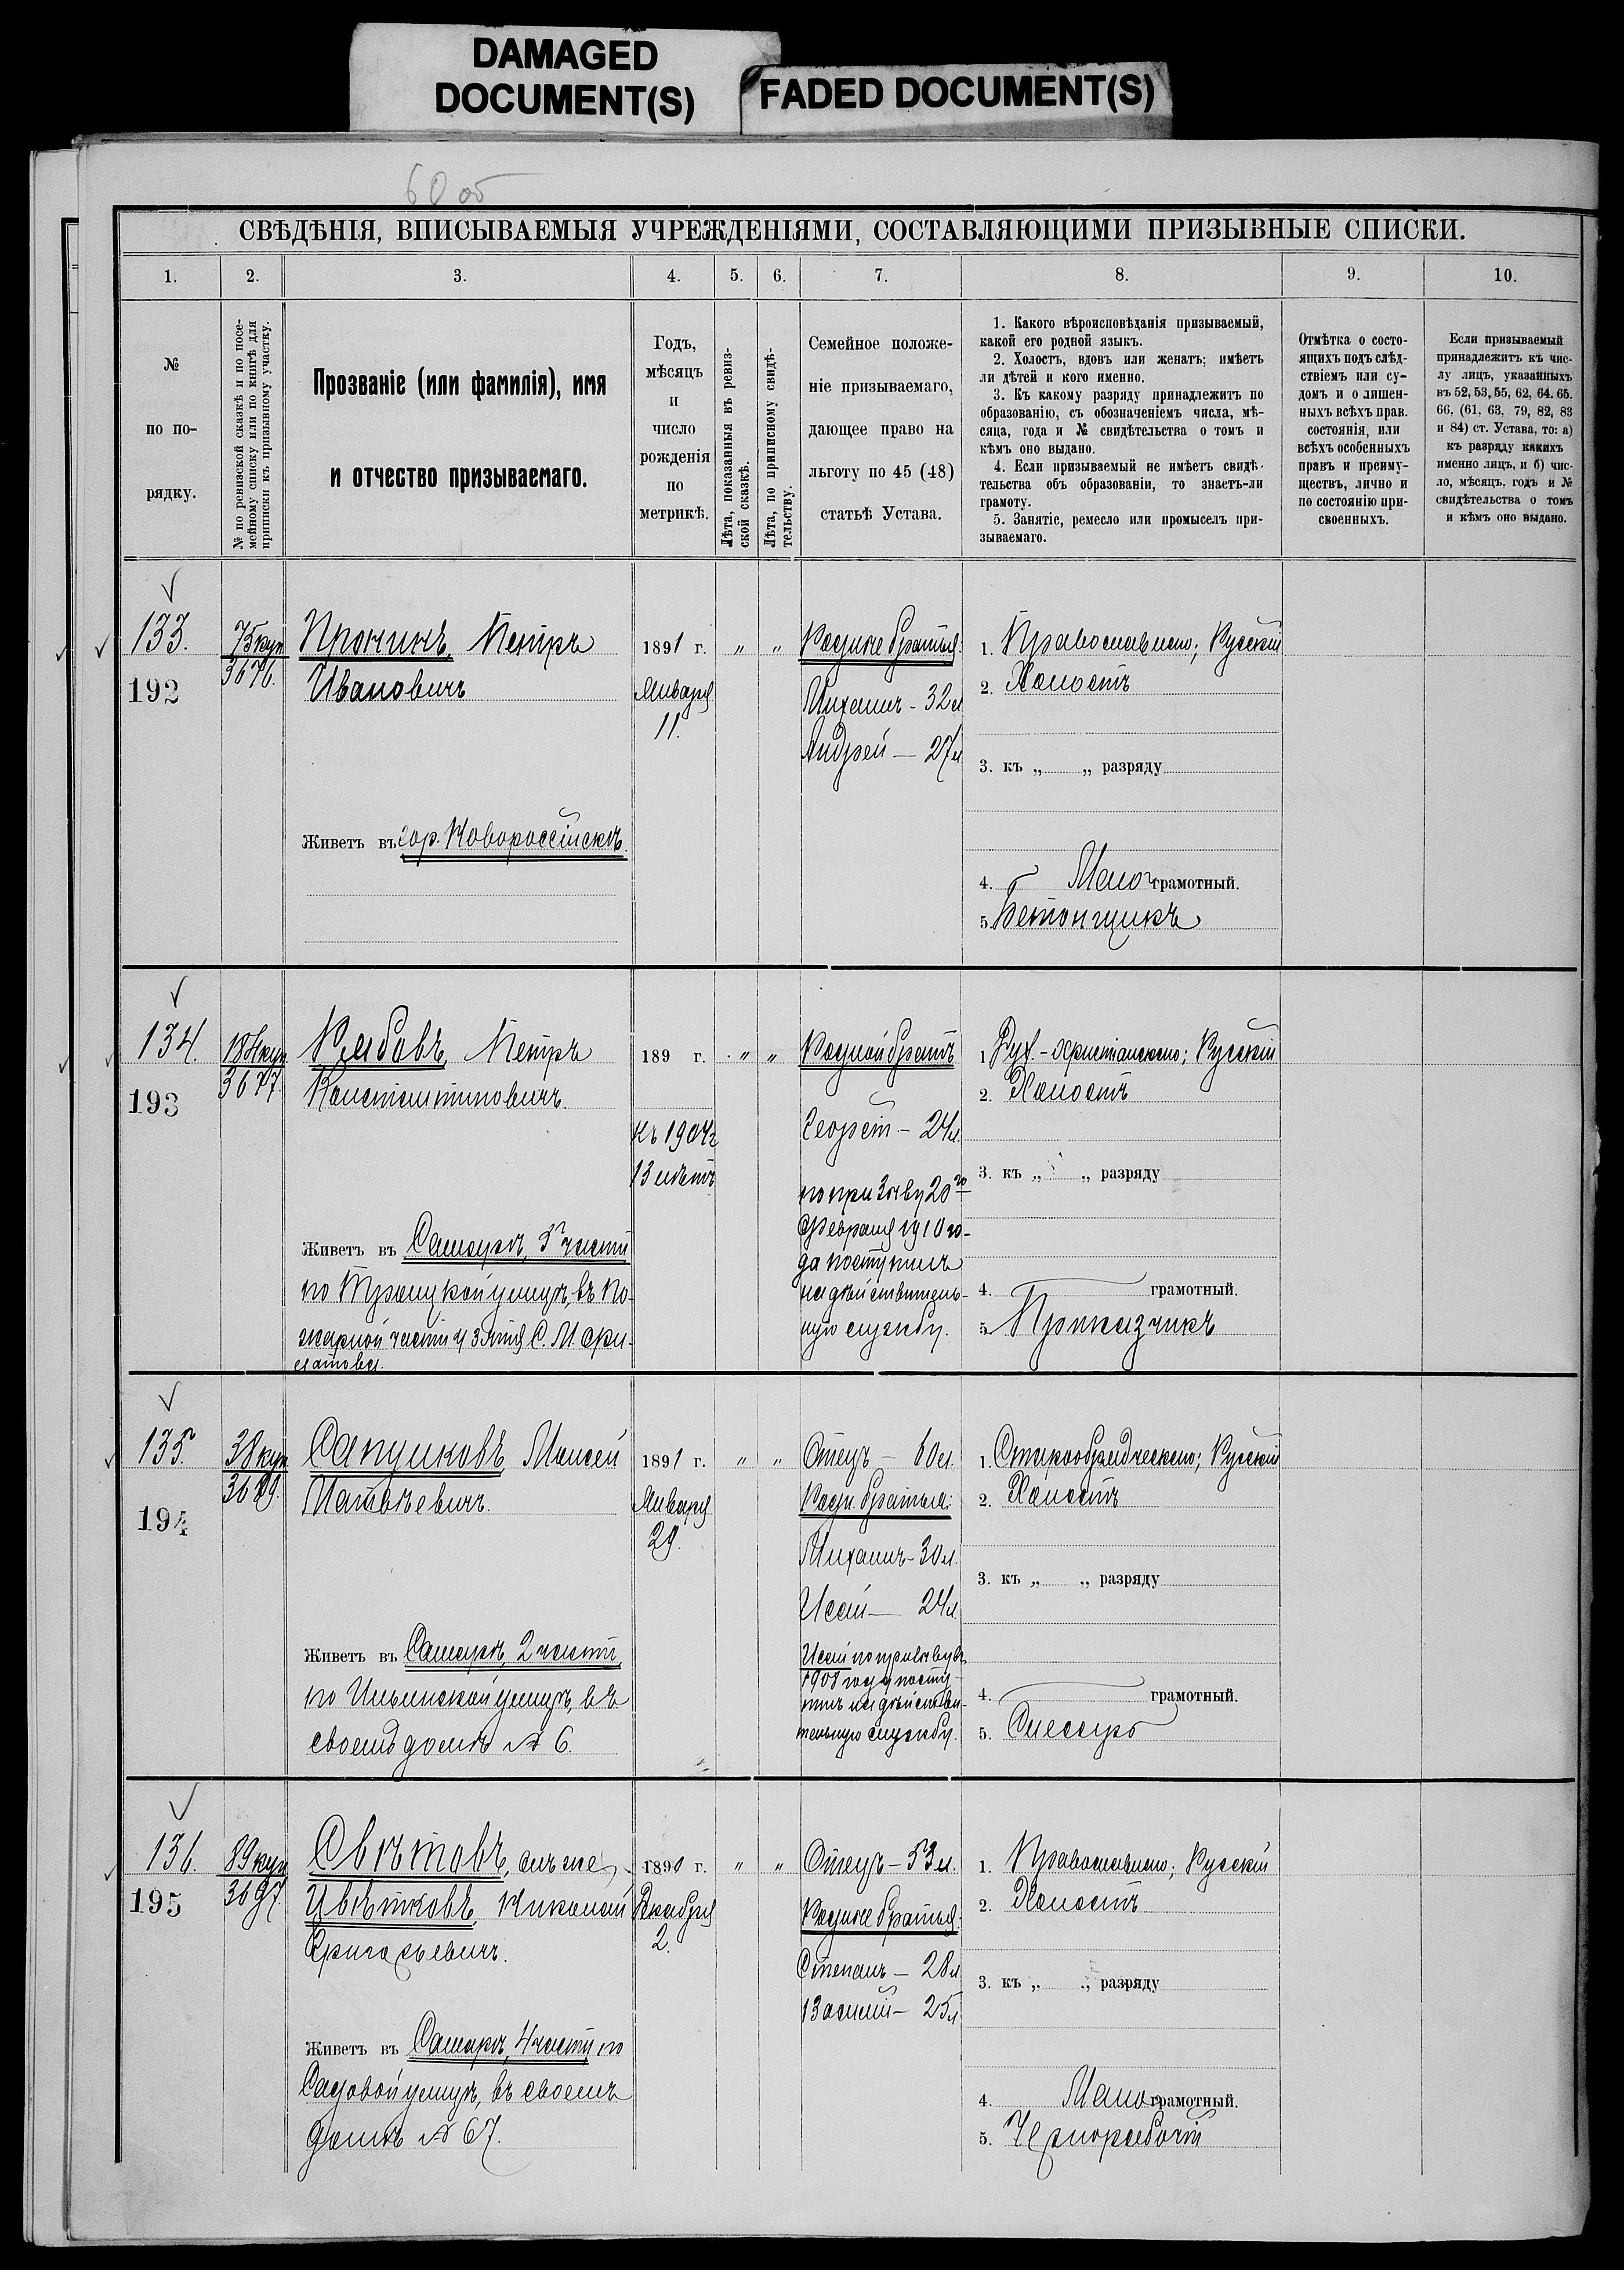 DAMAGED
DOCUMENT(S)
FADED DOCUMENT(S)
60 об
СВѢДѢНІЯ, ВПИСЫВАЕМЫЯ УЧРЕЖДЕНІЯМИ, СОСТАВЛЯЮЩИМИ ПРИЗЫВНЫЕ СПИСКИ.
1. 2. 3. 4. 5. 6. 7. 8. 9. 10.
№
по по-
рядку.
№ по ревизской сказкѣ и по посе-
мейному списку или по книгѣ для
приписки къ призывному участку.
Прозваніе (или фамилія), имя
и отчество призываемаго.
Годъ,
мѣсяцъ
и
число
рожденія
по
метрикѣ.
Лѣта, показанныя въ ревиз-
ской сказкѣ.
Лѣта, по приписному свидѣ-
тельству.
Семейное положе-
ніе призываемаго,
дающее право на
льготу по 45 (48)
статьѣ Устава.
1. Какого вѣроисповѣданія призываемый,
какой его родной языкъ.
2. Холостъ, вдовъ или женатъ; имѣетъ
ли дѣтей и кого именно.
3. Къ какому разряду принадлежитъ по
образованію, съ обозначеніемъ числа, мѣ-
сяца, года и № свидѣтельства о томъ и
кѣмъ оно выдано.
4. Если призываемый не имѣетъ свидѣ-
тельства объ образованіи, то знаетъ-ли
грамоту.
5. Занятіе, ремесло или промыселъ при-
зываемаго.
Отмѣтка о состо-
ящихъ подъ слѣд-
ствіемъ или су-
домъ и о лишен-
ныхъ всѣхъ прав.
состоянія, или
всѣхъ особенныхъ
правъ и преиму-
ществъ, лично и
по состоянію при-
своенныхъ.
Если призываемый
принадлежитъ къ чис-
лу лицъ, указанныхъ
въ 52, 53, 55, 62, 64, 65,
66, (61, 63, 79, 82, 83
и 84) ст. Устава, то: а)
къ разряду какихъ
именно лицъ, и б) чис-
ло, мѣсяцъ, годъ и №
свидѣтельства о томъ
и кѣмъ оно выдано.
133.
192
75 куп
3676.
Пронинъ, Петръ
Ивановичъ
Живетъ въ гор. Новороссійскѣ.
1891 г.
Января
11.
„ „
Родные братья:
Михаилъ - 32 л
Андрей — 27 л
1. Православное; Русскій
2. Холостъ
3. къ „ „ разряду
4. Малограмотный.
5. Бетонщикъ
134.
193
184 куп
3677
Рябовъ, Петръ
Константиновичъ.
Живетъ въ Самарѣ, 3 части
по Троицкой улицѣ, въ По-
жарной части у зятя С. М.
189 г.
къ 1904 г
13 лѣтъ
„ „
Родной братъ
Георгій - 24 л.
по призыву 20го
Февраля 1910 го-
да поступилъ
на дѣйствитель-
ную службу.
1. христіанское; Русскій
2. Холостъ
3. къ „ „ разряду
4. грамотный.
5. Приказчикъ
135.
194
38 куп
Сапунковъ, Моисей
Матвѣевичъ.
Живетъ въ Самарѣ, 2 части,
по Ильинской улицѣ, въ
своемъ домѣ № 6.
1891 г.
Января
29.
„ „
Отецъ — 60 л.
Родн. братья:
Михаилъ - 30 л.
24 л
по призыву въ
1908 году посту-
пилъ на дѣйстви-
тельную службу.
1. Старообрядческое; Русскій
2. Холостъ
3. къ „ „ разряду
4. грамотный.
5. Слесарь
136.
195
89 куп
3697.
Свѣтовъ, онъ же
Цвѣтковъ, Николай
Григорьевичъ.
Живетъ въ Самарѣ, 4 части по
Садовой улицѣ, въ своемъ
домѣ № 67.
1890 г.
Декабря
2.
„ „
Отецъ - 53 л.
Родные братья:
Степанъ — 28 л
Василій — 25 л
1. Православное; Русскій
2. Холостъ
3. къ „ „ разряду
4. Малограмотный.
5. Чернорабочій